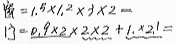 =1.5×1.2×3×2=
=0.9×2×2×2+1.×2.1=